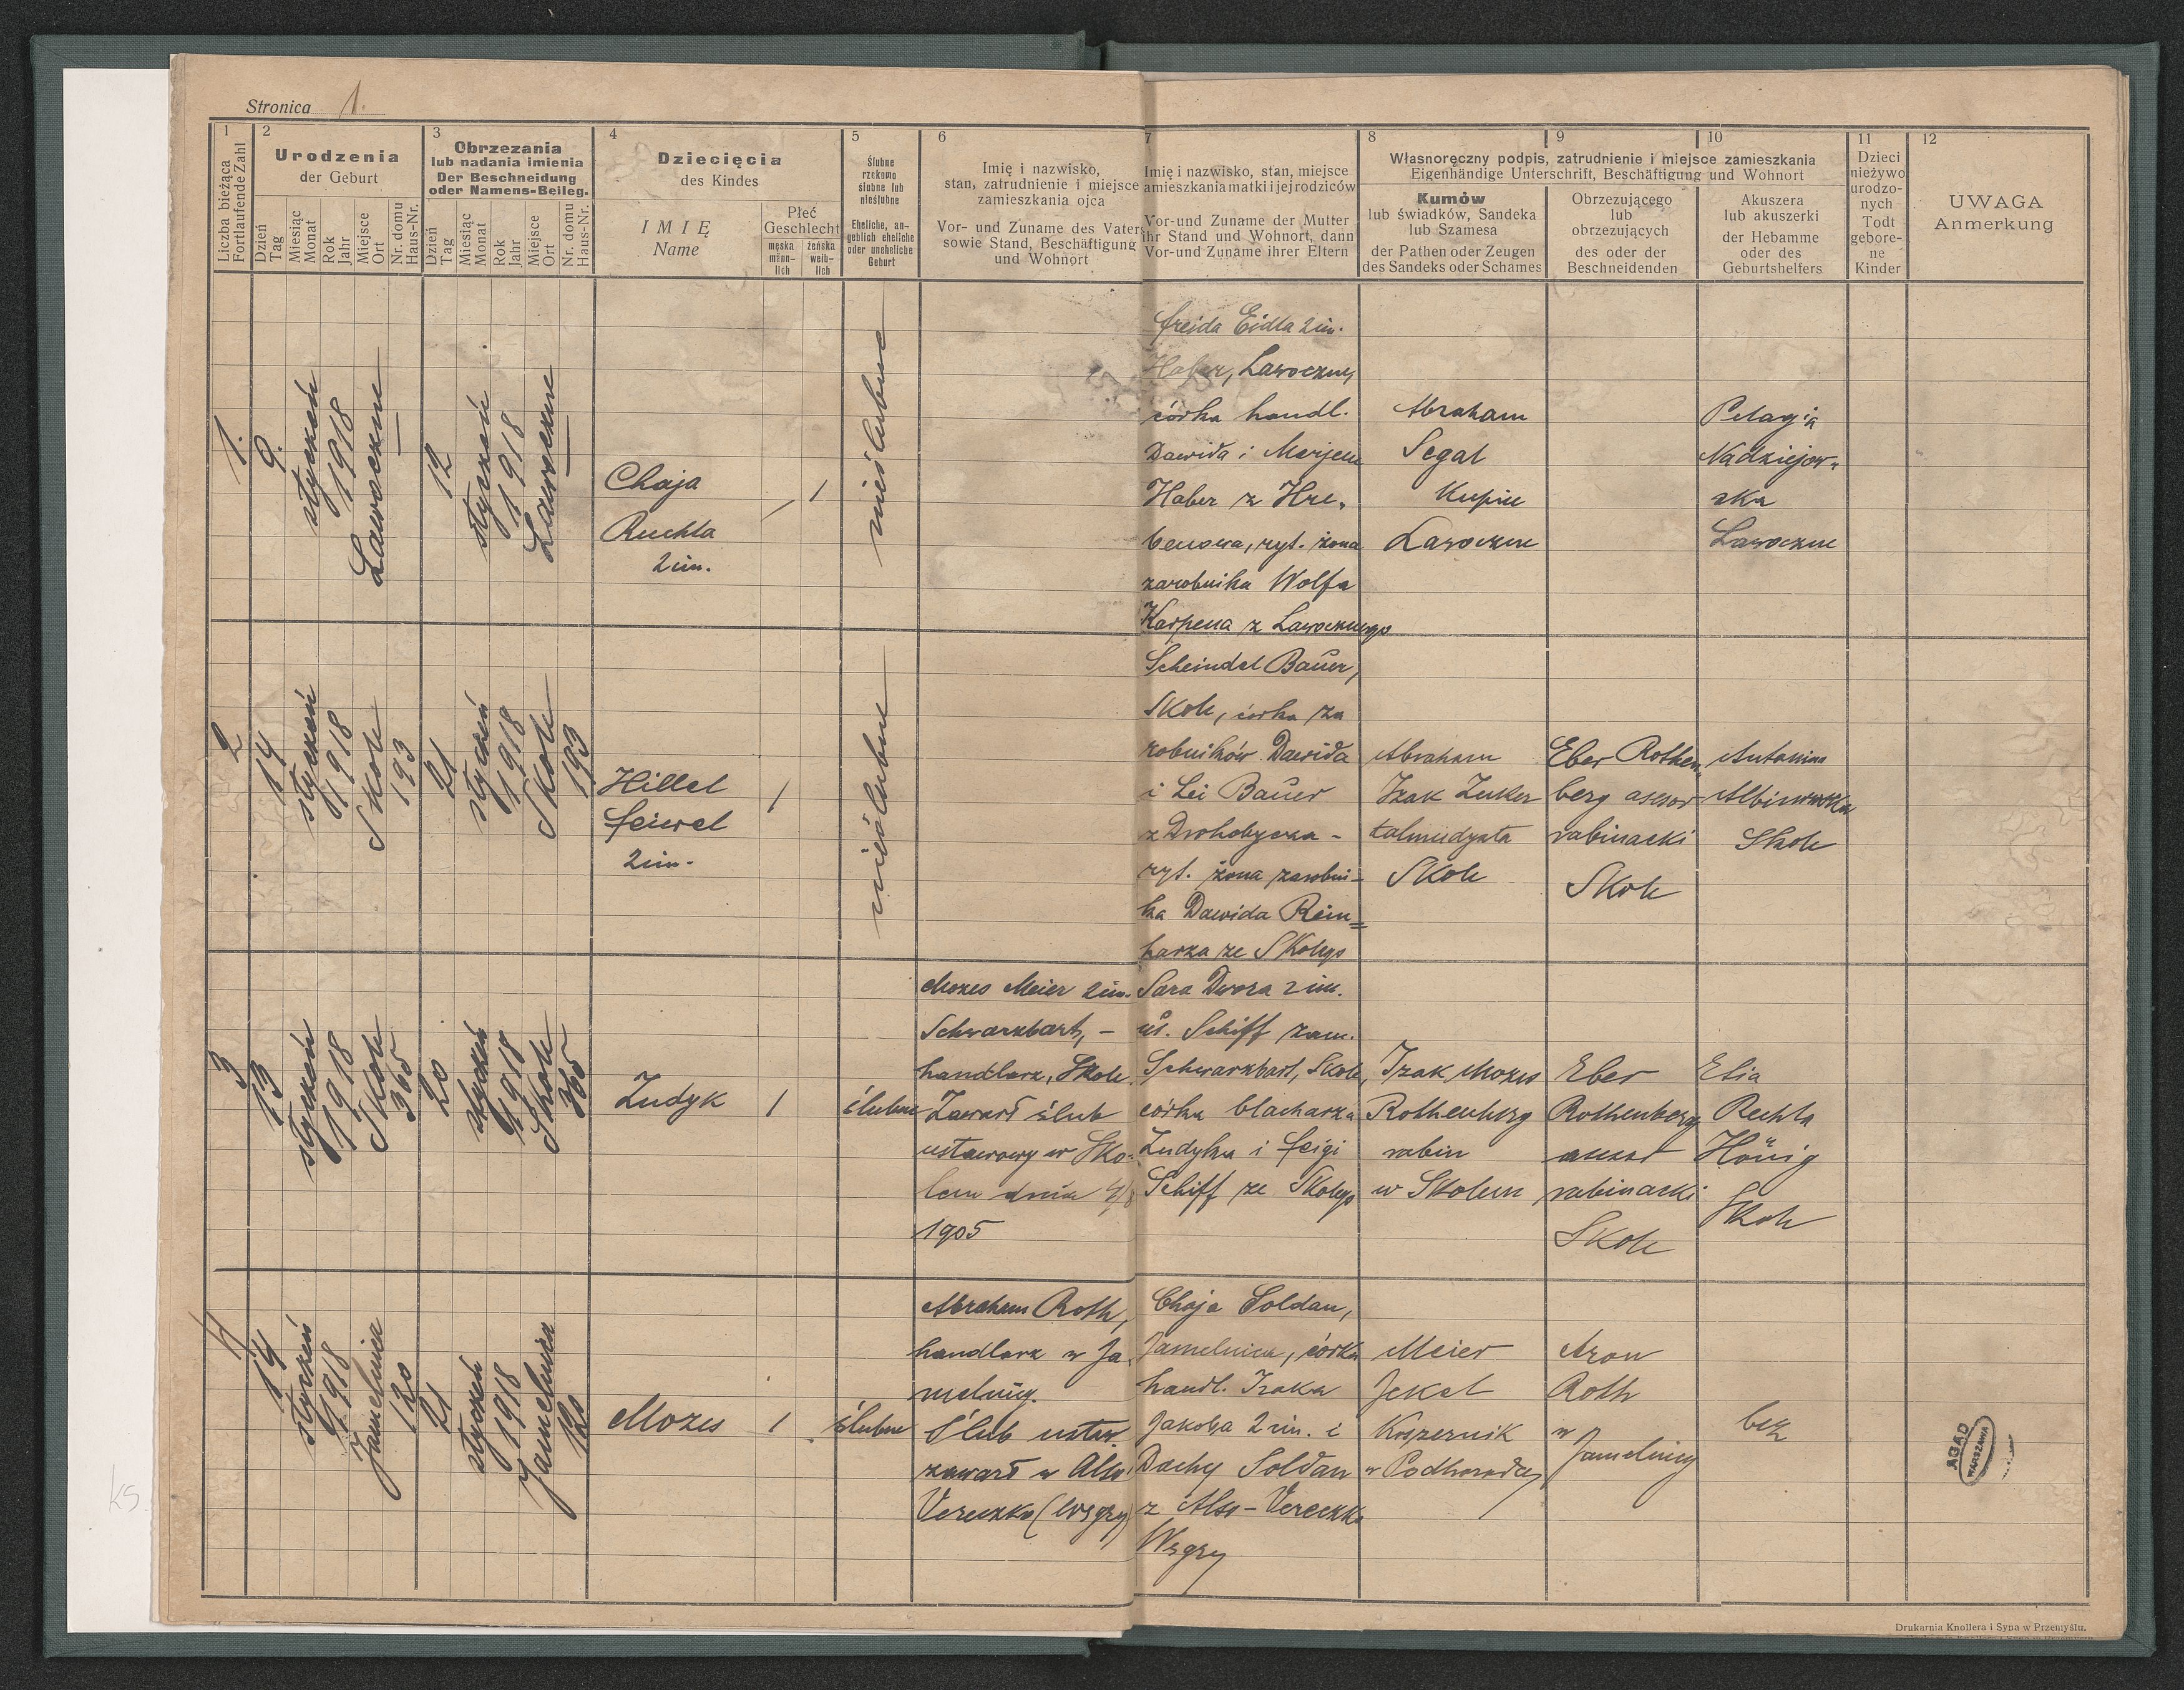 Stronica 1.
1
Liczba bieżąca
Fortlaufende Zahl
2
Urodzenia
der Geburt
Dzień
Tag
Miesiąc
Monat
Rok
Jahr
Miejsce
Ort
Nr. domu
Haus-Nr.
3
Obrzezania
lub nadania imienia
Der Beschneidung
oder Namens-Beileg.
Dzień
Tag
Miesiąc
Monat
Rok
Jahr
Miejsce
Ort
Nr. domu
Haus-Nr.
4
Dziecięcia
des Kindes
IMIĘ
Name
Płeć
Geschlecht
męska
männ-
lich
żeńska
weib-
lich
5
Ślubne
rzekomo
ślubne lub
nieślubne
Eheliche, an-
geblich eheliche
oder uneheliche
Geburt
6
Imię i nazwisko,
stan, zatrudnienie i miejsce
zamieszkania ojca
Vor- und Zuname des Vaters
sowie Stand, Beschäftigung
und Wohnort
7
Imię i nazwisko, stan, miejsce
amieszkania matki i jej rodziców
Vor-und Zuname der Mutter
ihr Stand und Wohnort, dann
Vor-und Zuname ihrer Eltern
8
9
10
Własnoręczny podpis, zatrudnienie i miejsce zamieszkania
Eigenhändige Unterschrift, Beschäftigung und Wohnort
Kumów
lub świadków, Sandeka
lub Szamesa
der Pathen oder Zeugen
des Sandeks oder Schames
Obrzezującego
lub
obrzezujących
des oder der
Beschneidenden
Akuszera
lub akuszerki
der Hebamme
oder des
Geburtshelfers
11
Dzieci
nieżywo
urodzo-
nych
Todt
gebore-
ne
Kinder
12
UWAGA
Anmerkung
1.
9.
styczeń
1918
Lawoczne
12
styczeń
1918
Lawoczne
Chaja
Ruchla
2 im.
1
nieślubne
Freida Eidla 2 im.
Haber, Lawoczne,
córka handl.
Dawida i Marjem
Haber z Hre-
benowa, ryt. żona
zarobnika Wolfa
Karpena z Lawocznego
Abraham
Segal
Kupiec
Lawoczne
Pelagia
Nadziejow-
ska
Lawoczne
2
14
styczeń
1918
Skole
193
21
styczeń
1918
Skole
193
Hillel
Feiwel
2 im.
1
nieślubne
Scheindel Bauer,
Skole, córka za
robników Dawida
i Lei Bauer
z Drohobycza -
ryt. żona zarobni-
ka Dawida Rein=
harza ze Skolego
Abraham
Izak Zucker
talmudysta
Skole
Eber Rothen-
berg asesor
rabinacki
Skole
Antonina
Skole
3
13
styczeń
1918
Skole
365
20
styczeń
1918
Skole
365
Zudyk
1
ślubne
Mozes Meier 2 im.
Schwarzbart, -
handlarz, Skole
Zawarł ślub
ustawowy w Sko-
lem dnia
1905
Sara Dwora 2 im.
ur. Schiff zam.
Schwarzbart, Skole,
córka blacharza
Zudyka i Feigi
Schiff ze Skolego
Izak Mozes
Rothenberg
rabin
w Skolem
Eber
Rothenberg
asesor
rabinacki
Skole
Elia
Rechla
Hönig
Skole
4
14
styczeń
1918
Jamelnica
120
21
styczeń
1918
Jamelnica
120
Mozes
1
ślubne
Abraham Roth,
handlarz w Ja-
melnicy.
Ślub ustaw.
zawarł w Also
Vereczko (Węgry)
Chaja Soldan,
Jamelnica, córka
handl. Izaka
Jakoba 2 im. i
Dachy Soldan
z Also-Vereczke
Węgry
Meier
Jekel
w
Aron
Roth
w
Jamelnicy
bez
AGAD
WARSZAWA
Drukarnia Knollera i Syna w Przemyślu.
ks.